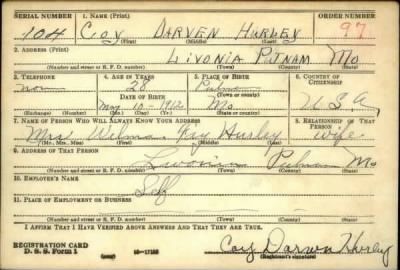 SERIAL NUMBER 1. NAME (Print) ORDER NUMBER
104 Coy DARVEN HURLEY 97
(First) (Middle) (Last)
2. ADDRESS (Print)
Livonia PUTNAM Mo
(Number and street or R. F. D. number) (Town) (County) (State)
3. TELEPHONE 4. AGE IN YEARS 5. PLACE OF BIRTH 6. COUNTRY OF CITIZENSHIP
non 28 Putnam
DATE OF BIRTH (Town or county)
May 10 - 1912 Mo. U S A
(Exchange) (Number) (Mo.) (Day) (Yr.) (State or country)
7. NAME OF PERSON WHO WILL ALWAYS KNOW YOUR ADDRESS 8. RELATIONSHIP OF THAT PERSON
Mrs Wilma Fay Hurley wife
(Mr., Mrs., Miss) (First) (Middle) (Last)
9. ADDRESS OF THAT PERSON
Livonia Putnam Mo
(Number and street or R. F. D. number) (Town) (County) (State)
10. EMPLOYER'S NAME
Self
11. PLACE OF EMPLOYMENT OR BUSINESS
(Number and street or R. F. D. number) (Town) (County) (State)
I AFFIRM THAT I HAVE VERIFIED ABOVE ANSWERS AND THAT THEY ARE TRUE.
REGISTRATION CARD
D. S. S. Form 1 (over) Coy Darven Hurley
(Registrant's signature)